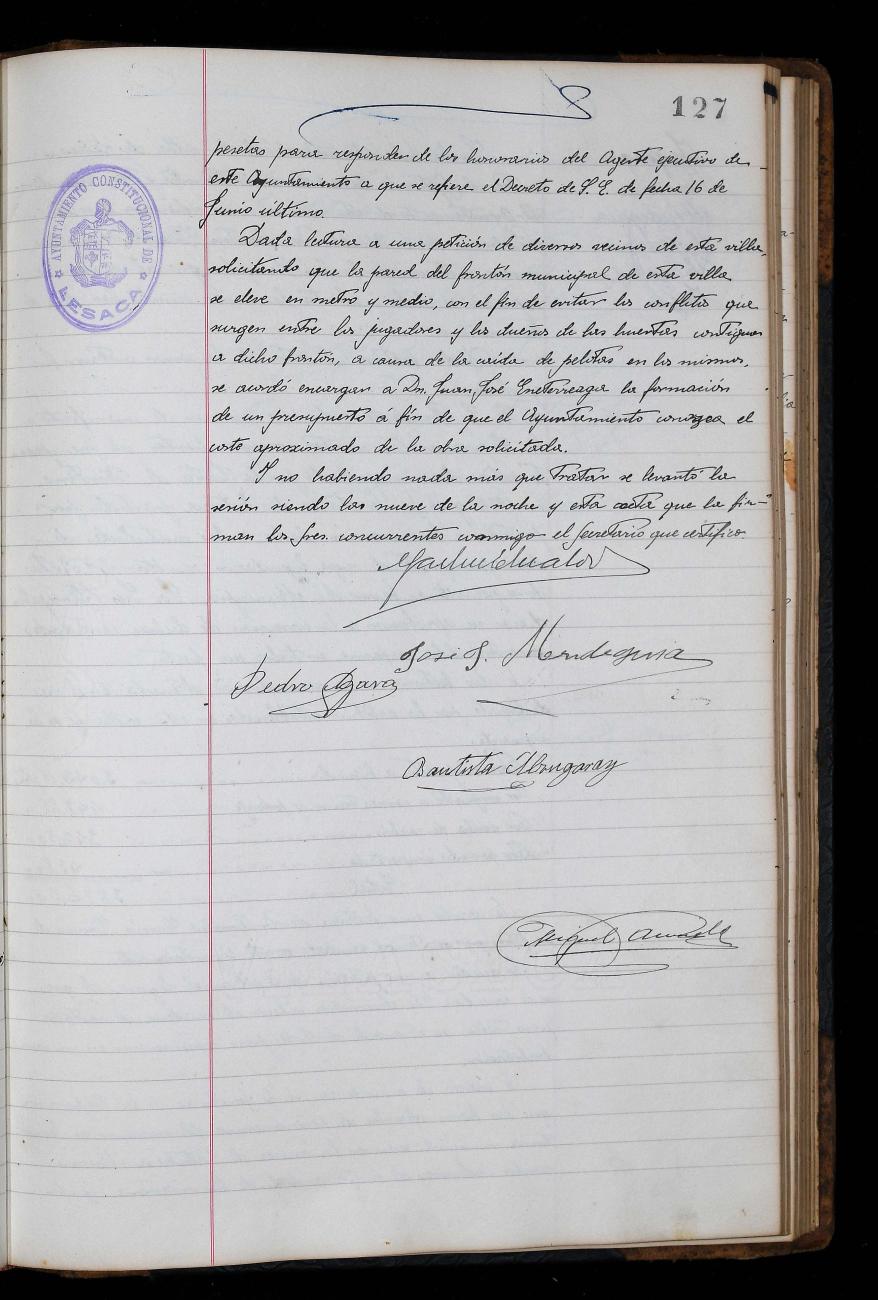 127
AYUNTAMIENTO CONSTITUCIONAL DE
LESACA
pesetas para responder de los honorarios del Agente ejecutivo de
este Ayuntamiento a que se refiere el Decreto de S. E. de fecha 16 de
Junio último.
Dada lectura a una petición de diversos vecinos de esta villa,
solicitando que la pared del frontón municipal de esta villa
se eleve en metro y medio, con el fin de evitar los conflictos que
surgen entre los jugadores y los dueños de las huertas contiguas
a dicho frontón, a causa de la caida de pelotas en los mismos,
se acordó encargar a Dn. Juan José Eneterreaga la formación
de un presupuesto á fin de que el Ayuntamiento conozca el
coste aproximado de la obra solicitada.
Y no habiendo nada más que tratar se levantó la
sesión siendo las nueve de la noche y esta acta que la fir-
man los Sres. concurrentes conmigo el Secretario que certifico.
José J. Mendeguia
Pedro
Bautista
Miguel